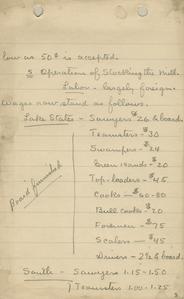 low as 50¢ is accepted.
5 Operations of Stocking the Mill.
Labor - largely foreign.
Wages now stand as follows.
Lake States - Sawyers $26 & board
Teamsters - $30
Swampers - $24
Green hands - 20
Top-loaders - $45
Cooks - $40-80
Bull cooks - $20
Foremen - $75
Scalers - $45
Drivers - 2½ & board
Board furnished
South - Sawyers 1.15-1.50
Teamsters 1.00-1.25